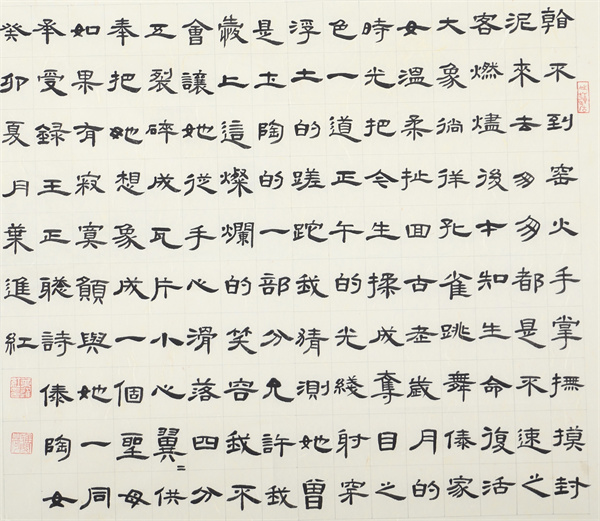 看不到窑火手掌撫摸封
泥來去匆匆都是不速之
客燃燼後才知生命復活
大象徜徉孔雀跳舞傣家
女溫柔扯回古老歲月的
時光把今生揉成奪目之
色一道正午的光綫射穿
浮土的蹉跎我猜測她曾
是土陶的一部分允許我
戴上這燦爛的笑容我不
會讓她從手心滑落四分
五裂碎成瓦片小心翼〻供
奉把她想象成一個聖母
如果有寂寞願與她一同
承受録王正聴詩傣陶女
癸卯夏月葉進紅